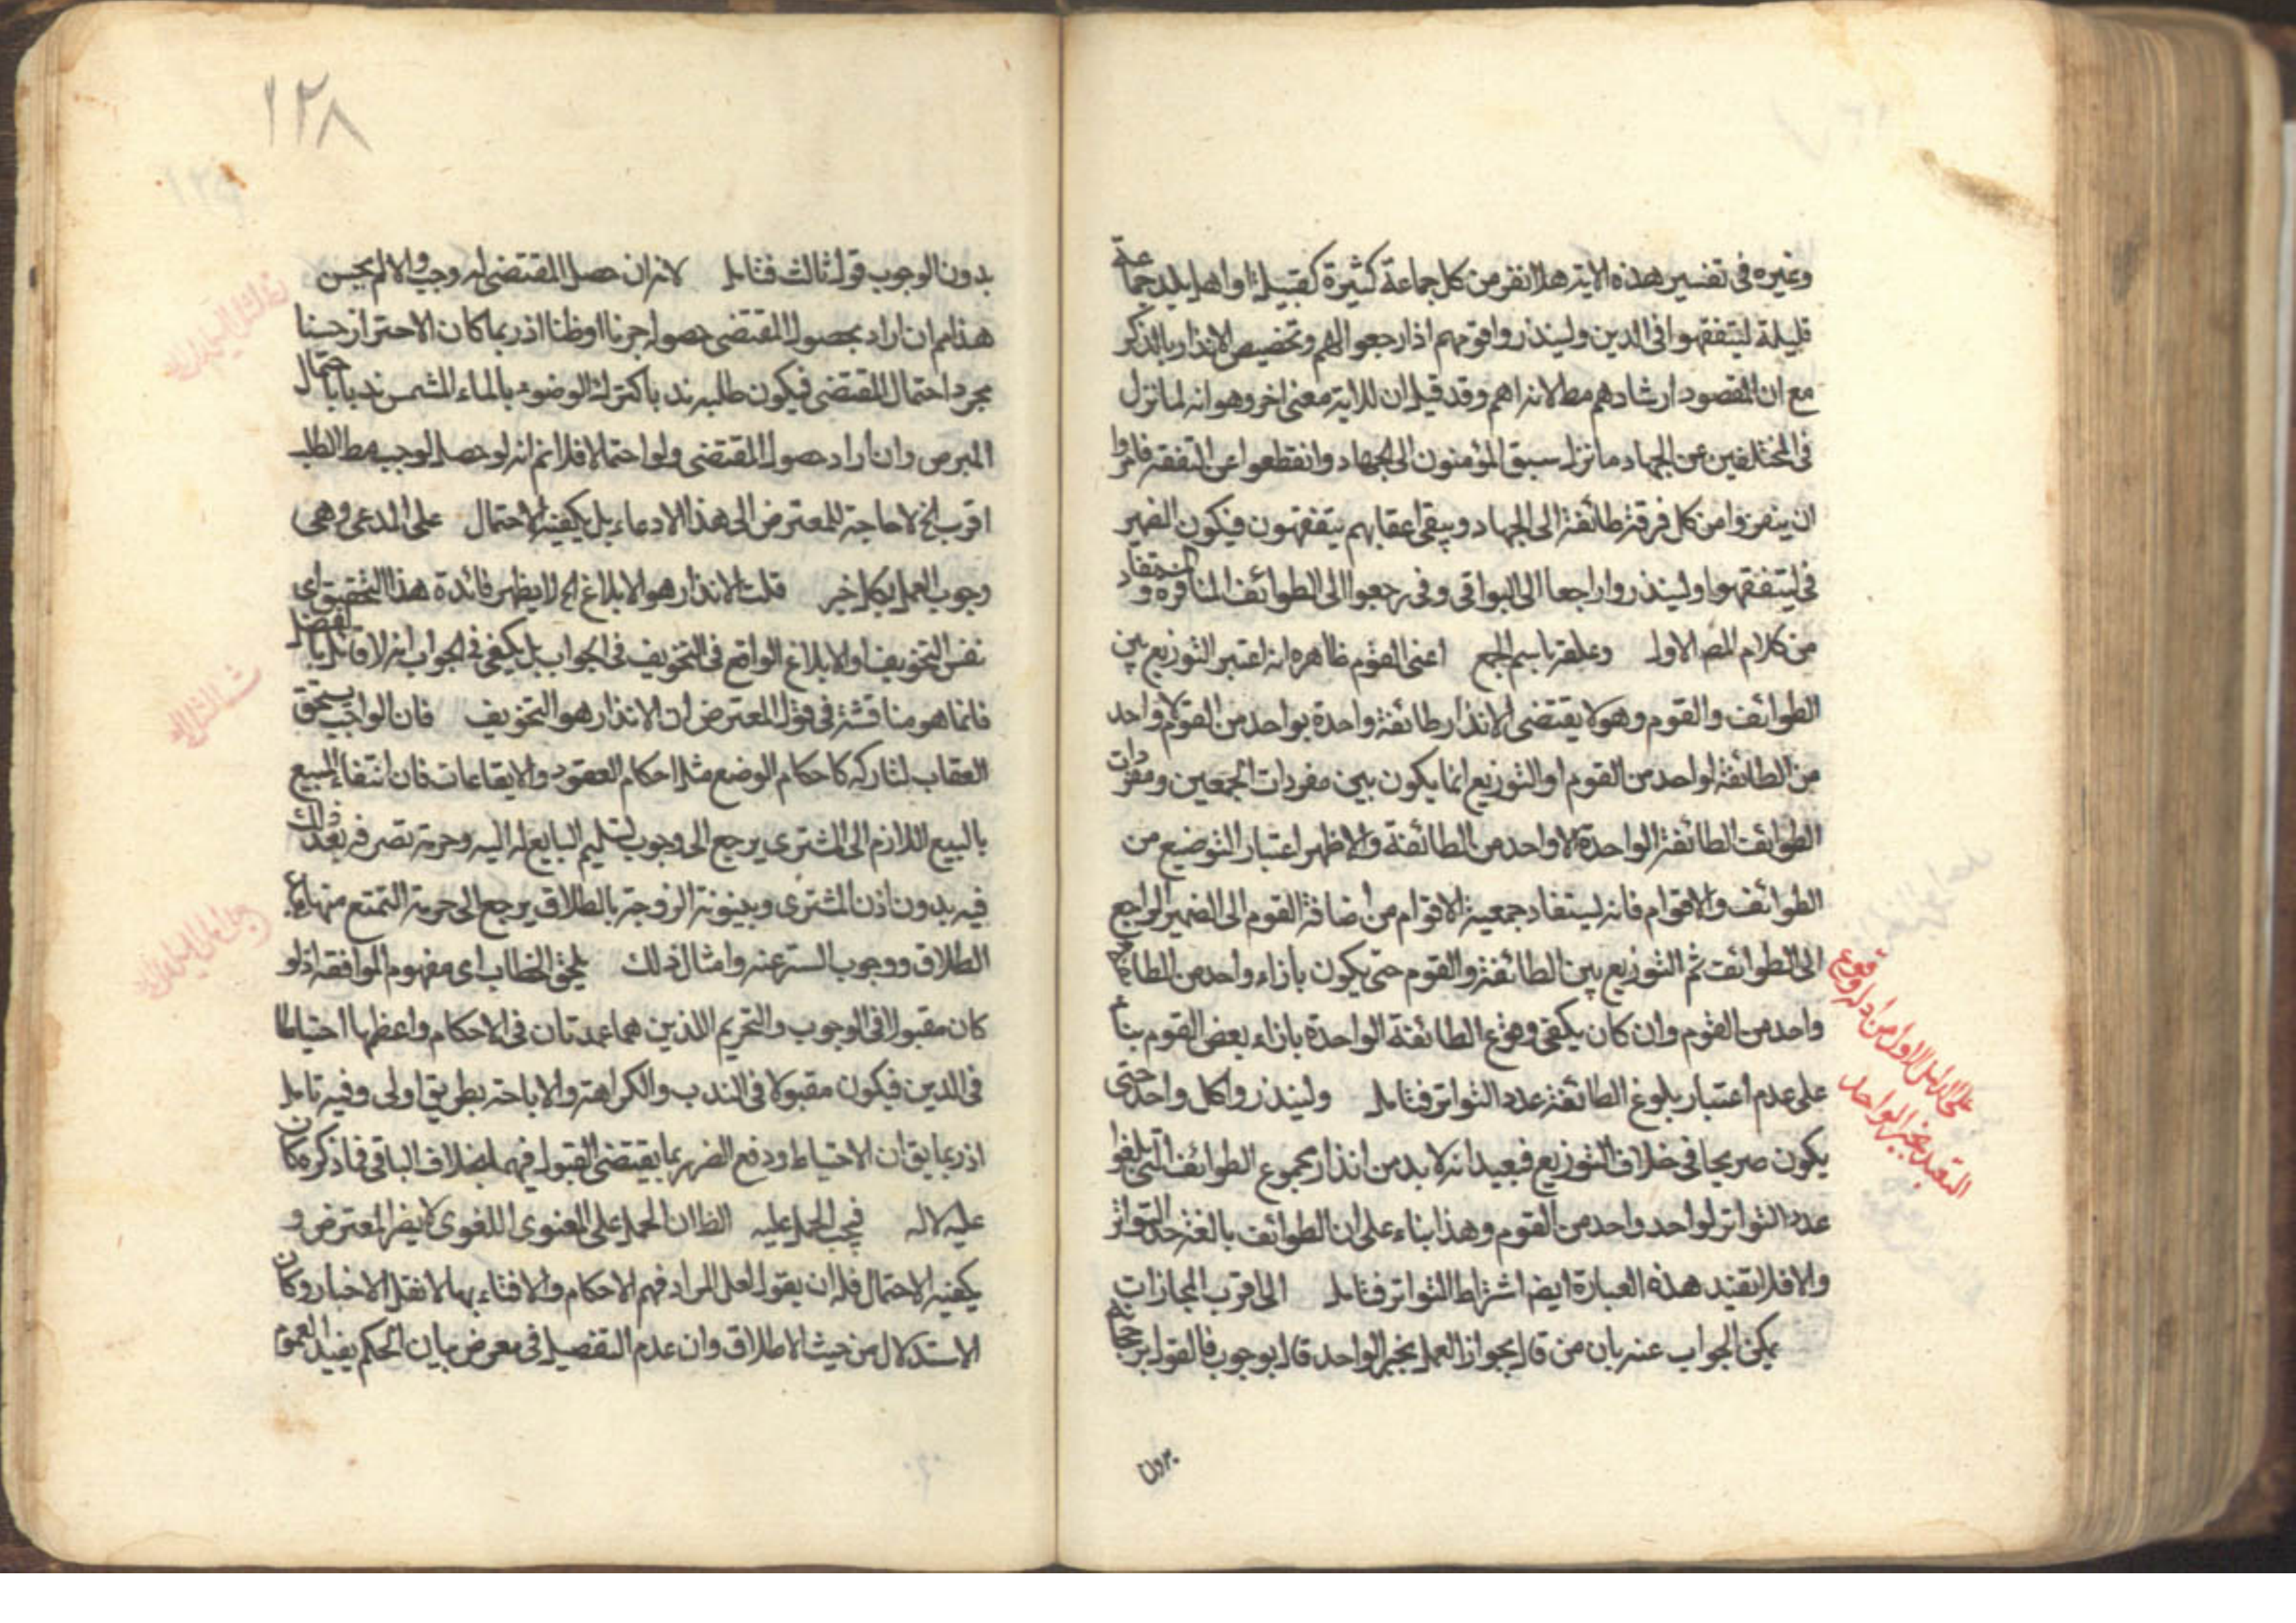 وغيره في تفسير هذه الاية هلا نفر من كل جماعة كثيرة كقبيلة او اهل بلد جماعة
قليلة ليتفقهوا في الدين ولينذروا قومهم اذا رجعوا اليهم وتخصيص الانذار بالذكر
مع ان المقصود ارشادهم مط لانه اهم وقد قيل ان للاية معنى اخر وهو انه لما نزل
في المتخلفين عن الجهاد ما نزل سبق المؤمنون الى الجهاد وانقطعوا عن التفقه فامروا
ان ينفروا من كل فرقة طائفة الى الجهاد ويبقى اعقابهم يتفقهون فيكون الضمير
في ليتفقهوا ولينذروا راجعا الى البواقي وفي رجعوا الى الطوائف النافرة والمستفاد
من كلام المصـ الاول وعلقه باسم الجمع اعني القوم ظاهره انه اعتبر التوزيع بين
الطوائف والقوم وهو لا يقتضي الا انذار طائفة واحدة بواحد من القوم لا واحد
من الطائفة لواحد من القوم او التوزيع انما يكون بين مفردات الجمعين ومفردات
الطوائف الطائفة الواحدة لا واحد من الطائفة والاظهر اعتبار التوضيع من
الطوائف والاقوام فانه يستفاد جمعية الاقوام من اضافة القوم الى الضمير الراجع
الى الطوائف ثم التوزيع بين الطائفة والقوم حتى يكون بازاء واحد من الطائفة
واحد من القوم وان كان يكفي وقوع الطائفة الواحدة بازاء بعض القوم بناء
على عدم اعتبار بلوغ الطائفة عدد التواتر فتامل ولينذروا كل واحد حتى
يكون صريحا في خلاف التوزيع فبعيد انه لا بد من انذار مجموع الطوائف التي بلغوا
عدد التواتر لواحد واحد من القوم وهذا بناء على ان الطوائف بالغة حد التواتر
والا فلا تفيد هذه العبارة ايضا اشتراط التواتر فتامل الى اقرب المجازات
يمكن الجواب عنه بان من قال بجواز العمل بخبر الواحد قال بوجوب فالقول برجحانه
بدون
على الدليل الاول من ادلة وقوع
التعبد بخبر الواحد
١٢٨
بدون الوجوب قول ثالث فتامل لانه ان حصل المقتضي له وجب والا لم يحسن
هذا لم ان اراد بحصول المقتضي حصوله جزما او ظنا اذ ربما كان الاحتراز حسنا
بمجرد احتمال المقتضي فيكون طلبه ندبا كترك الوضوء بالماء المشمس ندبا باحتمال
البرص وان اراد حصول المقتضي ولو احتمالا فلانم انه لو حصل لوجب مط الطلب
اقرب الخ لا حاجة للمعترض الى هذا الادعاء بل يكفيه الاحتمال على المدعى وهي
وجوب العمل بكل خبر قلت الانذار هو الابلاغ الخ لا يظهر فائدة هذا التحقيق اي
نفس التخويف او الابلاغ الواقع في التخويف في الجواب بل يكفي في الجواب انه لا قائل بالفصل
فانما هو مناقشة في قول المعترض ان الانذار هو التخويف فان الواجب يستحق
العقاب لتاركه كاحكام الوضع مثل احكام العقود والايقاعات فان انتفاء المبيع
بالبيع اللازم الى المشتري يرجع الى وجوب تسليم البايع له اليه وحرمة تصرفه بعد ذلك
فيه بدون اذن المشتري وبينونة الزوجة بالطلاق يرجع الى حرمة التمتع منها بعد
الطلاق ووجوب الستر عنه وامثال ذلك بلحن الخطاب اي مفهوم الموافقة اذ لو
كان مقبولا في الوجوب والتحريم اللذين هما عمدتان في الاحكام واعظمها احتياطا
في الدين فيكون مقبولا في الندب والكراهة والاباحة بطريق اولى وفيه تامل
اذ ربما يق ان الاحتياط ودفع الضرر بما يقتضي القبول فيهما بخلاف الباقي فما ذكره كان
عليه لا له فيجب الحمل عليه الظ ان الحمل على المعنوي اللغوي لا يضر المعترض و
يكفيه الاحتمال فله ان يقول لعل المراد فهم الاحكام والافتاء بها لا نقل الاخبار وكان
الاستدلال من حيث الاطلاق وان عدم التفصيل في معرض بيان الحكم يفيد العموم